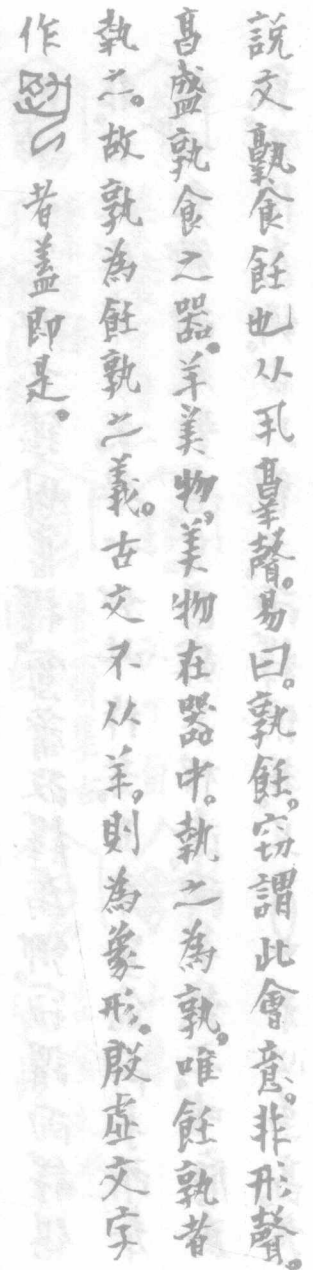 說文𩱧食飪也从丮𦎫聲。易曰。孰飪。窃謂此會意。非形聲。
亯盛孰食之器。羊美物。美物在器中。執之為孰。唯飪孰者
執之。故孰為飪孰之義。古文不从羊。則為象形。殷虛文字
作者蓋即是。